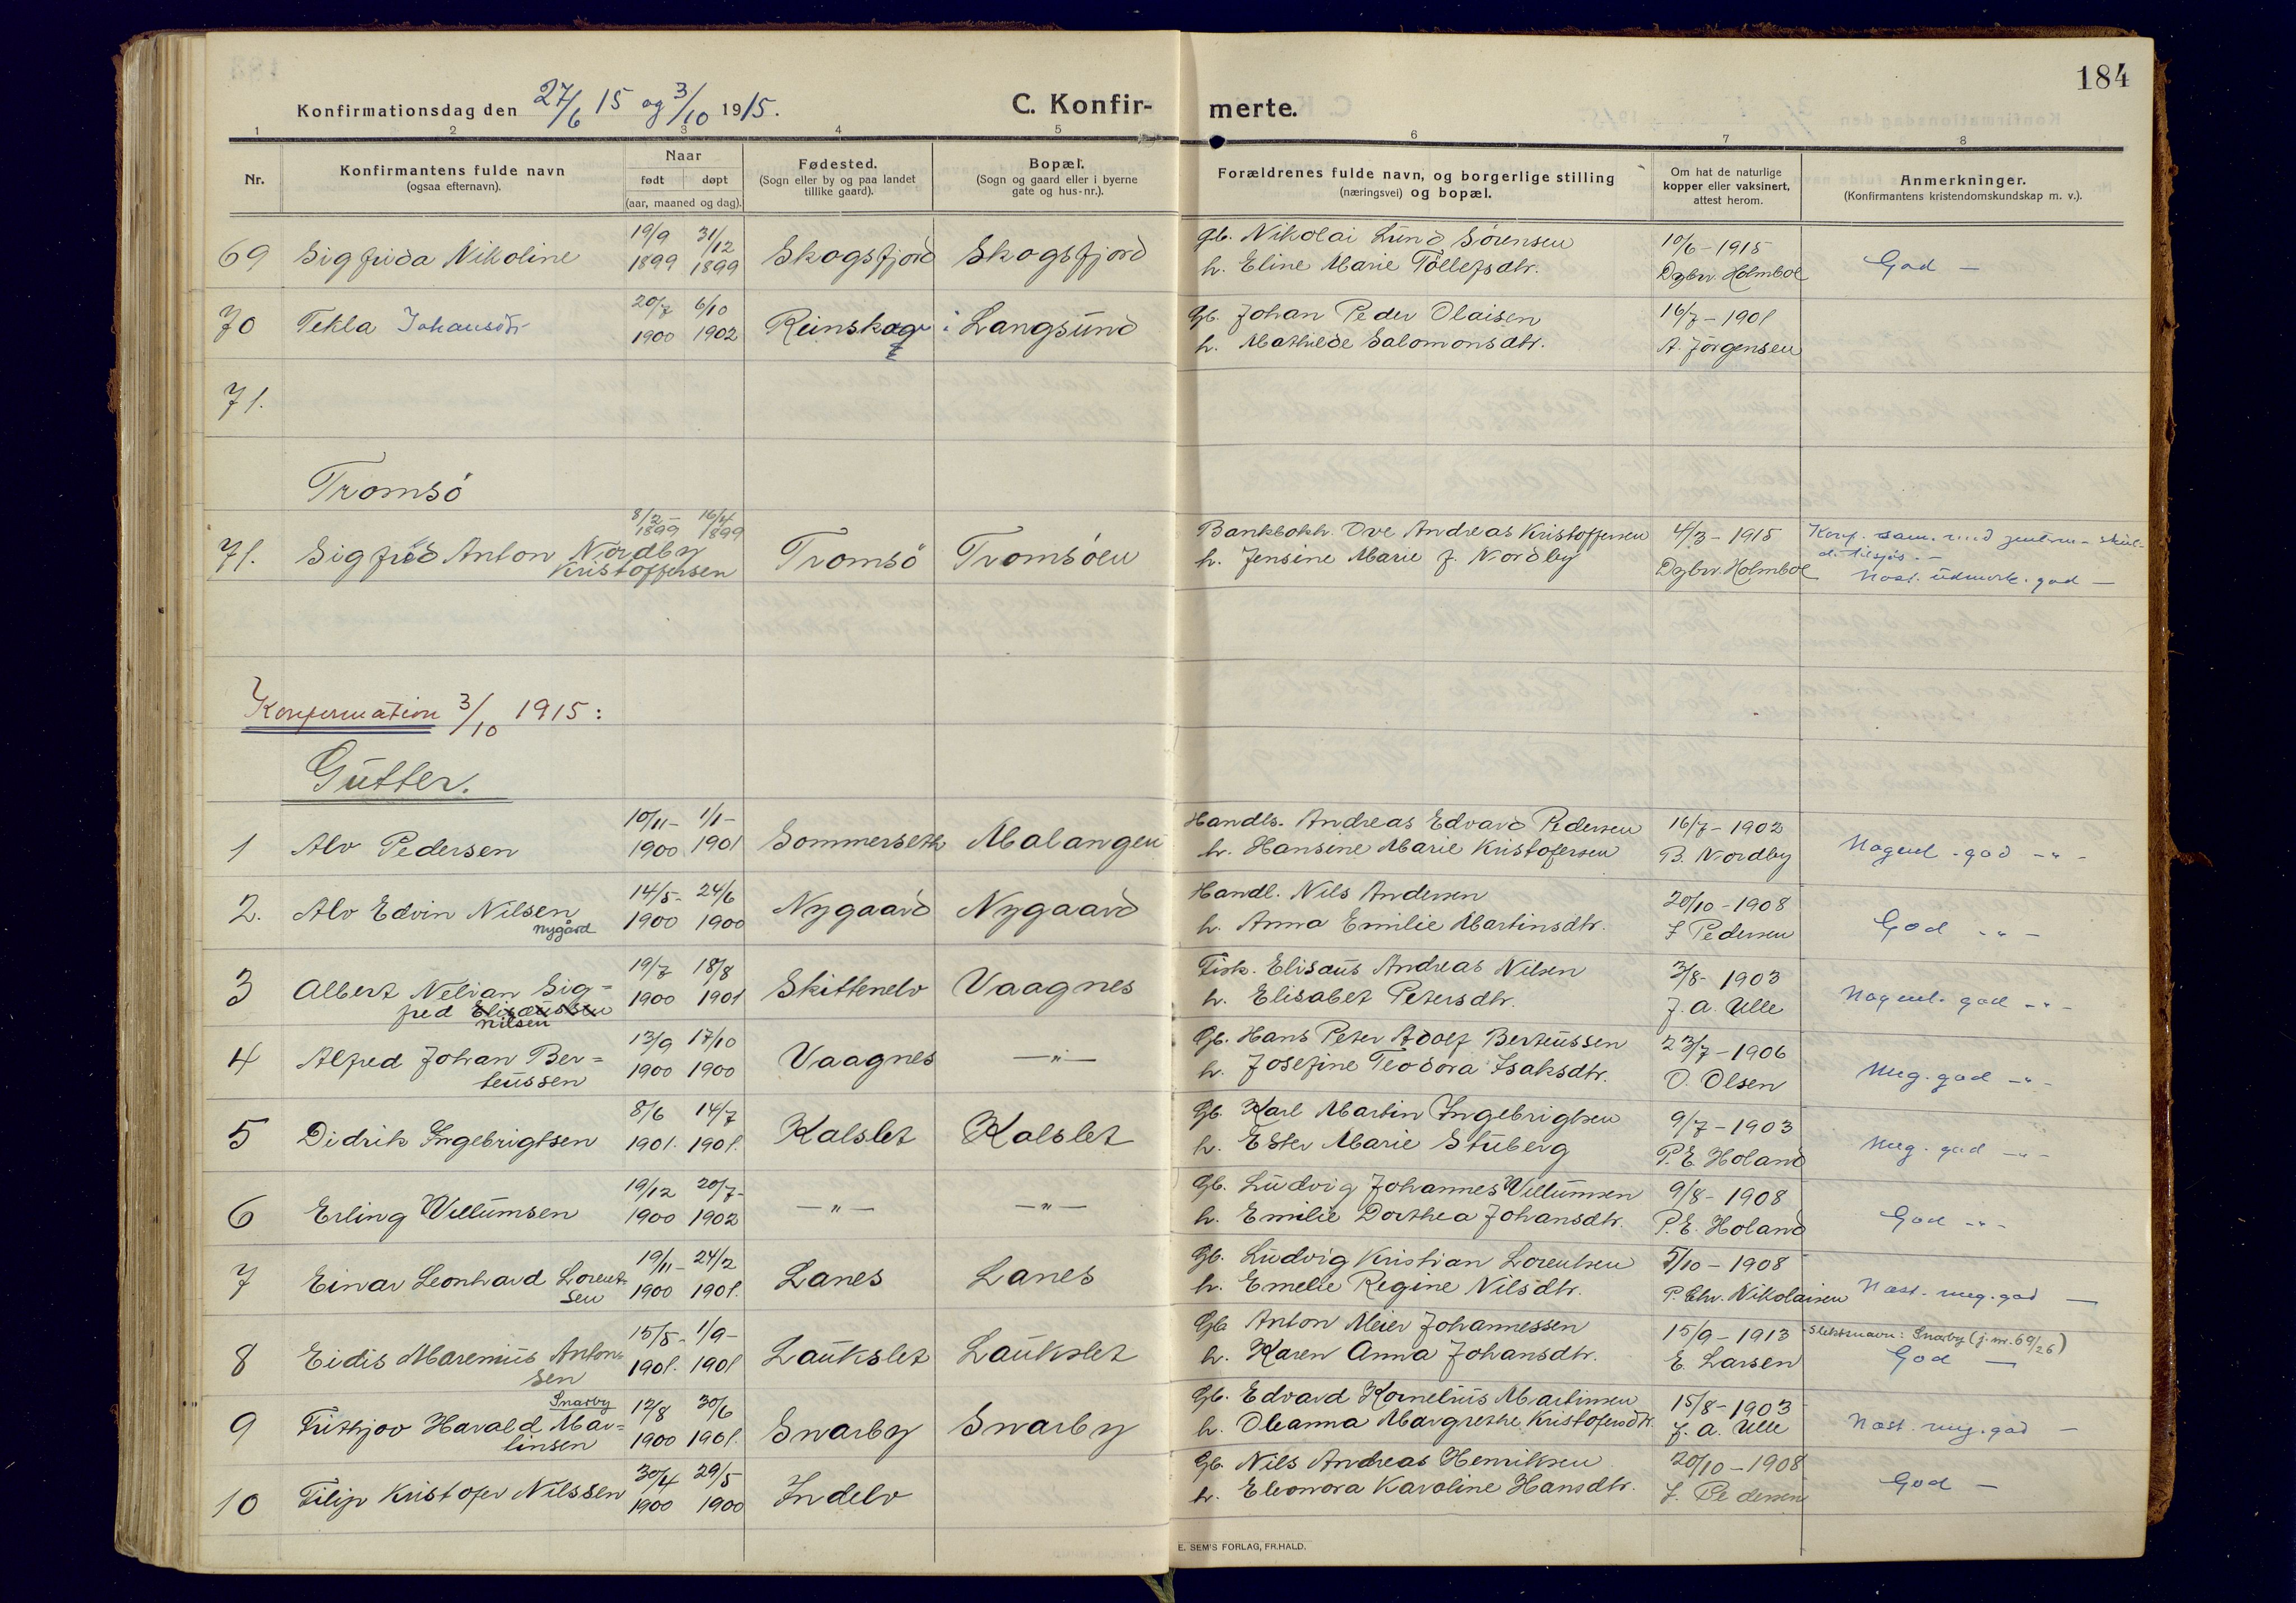 184
Konfirmationsdag den 27/6 15 og 3/10 1915.
C. Konfirmerte.
1 2 3 4 5 6 7 8
Nr.
Konfirmantens fulde navn
(ogsaa efternavn).
Naar
født døpt
(aar, maaned og dag).
Fødested.
(Sogn eller by og paa landet
tillike gaard).
Bopæl.
(Sogn og gaard eller i byerne
gate og hus-nr.).
Forældrenes fulde navn, og borgerlige stilling
(næringsvei) og bopæl.
Om hat de naturlige
kopper eller vaksinert,
attest herom.
Anmerkninger.
(Konfirmantens kristendomskundskap m. v.).
19/9 31/12 Gb. Nikolai Lund Sørensen 10/6-1915
69 Sigfrida Nikoline 1899 1899 Skogsfjord Skogsfjord h. Eline Marie Tøllefsdtr. Dgbr. Holmboe God —
20/7 6/10 Gb. Johan Peder Olaisen 16/7-1901
70 Tekla Johansdtr 1900 1902 Reinskar i Langsund h. Mathilde Salomonsdtr. A. Jørgensen
71.
Tromsö
8/2- 16/4
1899 1899 Bankbokh. Ove Andreas Kristoffersen 4/3-1915 Konf. sam. med
71. Sigfrid Anton Nordby Tromsö Tromsöen h. Jensine Marie f. Nordby Dgbr. Holmboe
Kristoffersen Næst. udmerk. god —
Konfirmation 3/10 1915:
Gutter.
10/11- 1/1- Handls. Andreas Edvard Pedersen 16/7-1902
1 Alv Pedersen 1900 1901 Sommerseth Malangen h. Hansine Marie Kristofersen B. Nordby Nogenl. god -"-
14/5- 24/6 Handl. Nils Andersen 20/10-1908
2. Alv Edvin Nilsen 1900 1900 Nygaard Nygaard h. Anna Emilie Martinsdtr. J Pedersen God -"-
Nygård
19/7 18/8 Fisk. Elisæus Andreas Nilsen 3/8-1903
3 Albert Nelian Sig= 1900 1901 Skittenelv Vaagnes h. Elisabet Petersdtr. J. A. Ulle Nogenl. god -"-
fred Elisæussen
Nilsen
13/9 17/10 Gb. Hans Peter Adolf Berteussen 23/7-1906
4 Alfred Johan Ber= 1900 1900 Vaagnes —"— h. Josefine Teodora Isaksdtr. O. Olsen Meg. god -"-
teussen
8/6 14/7 Gb. Karl Martin Ingebrigtsen 9/7-1903
5 Didrik Ingebrigtsen 1901. 1901. Kalslet Kalslet h. Ester Marie Stuberg P. E. Holand Meg. god -"-
19/12 20/7- Gb. Ludvig Johannes Willumsen 9/8-1908
6 Erling Willumsen 1900 1902 —"— —"— h. Emilie Dorthea Johansdtr. P. E. Holand God -"-
19/11- 24/2 Gb. Ludvig Kristian Lorentsen 5/10-1908
7 Einar Leonhard Lorent- 1900 1901. Lanes Lanes h. Emelie Regine Nilsdtr. P. Chr. Nikolaisen Næst. meg. god —
sen
15/5- 1/9- Gb Anton Meier Johannessen 15/9-1913 Slektsnavn: Snarby (j. nr. 69/26)
8 Eidis Maremius Anton- 1901. 1901 Laukslet Laukslet h. Karen Anna Johansdtr. E. Larsen God —
sen
Snarby 12/8 30/6 Gb. Edvard Kornelius Martinsen 15/8-1903
9 Fritjov Harald Mar- 1900 1901. Snarby Snarby h. Oleanna Margrethe Kristofersdtr. J. A. Ulle Næst. meg. god —
tinsen
30/4 29/5 Gb. Nils Andreas Henriksen 20/10-1908
10 Filip Kristofer Nilssen 1900 1900 Indelv h. Eleonora Karoline Hansdtr. J. Pedersen God —
E. SEM'S FORLAG, FR.HALD.